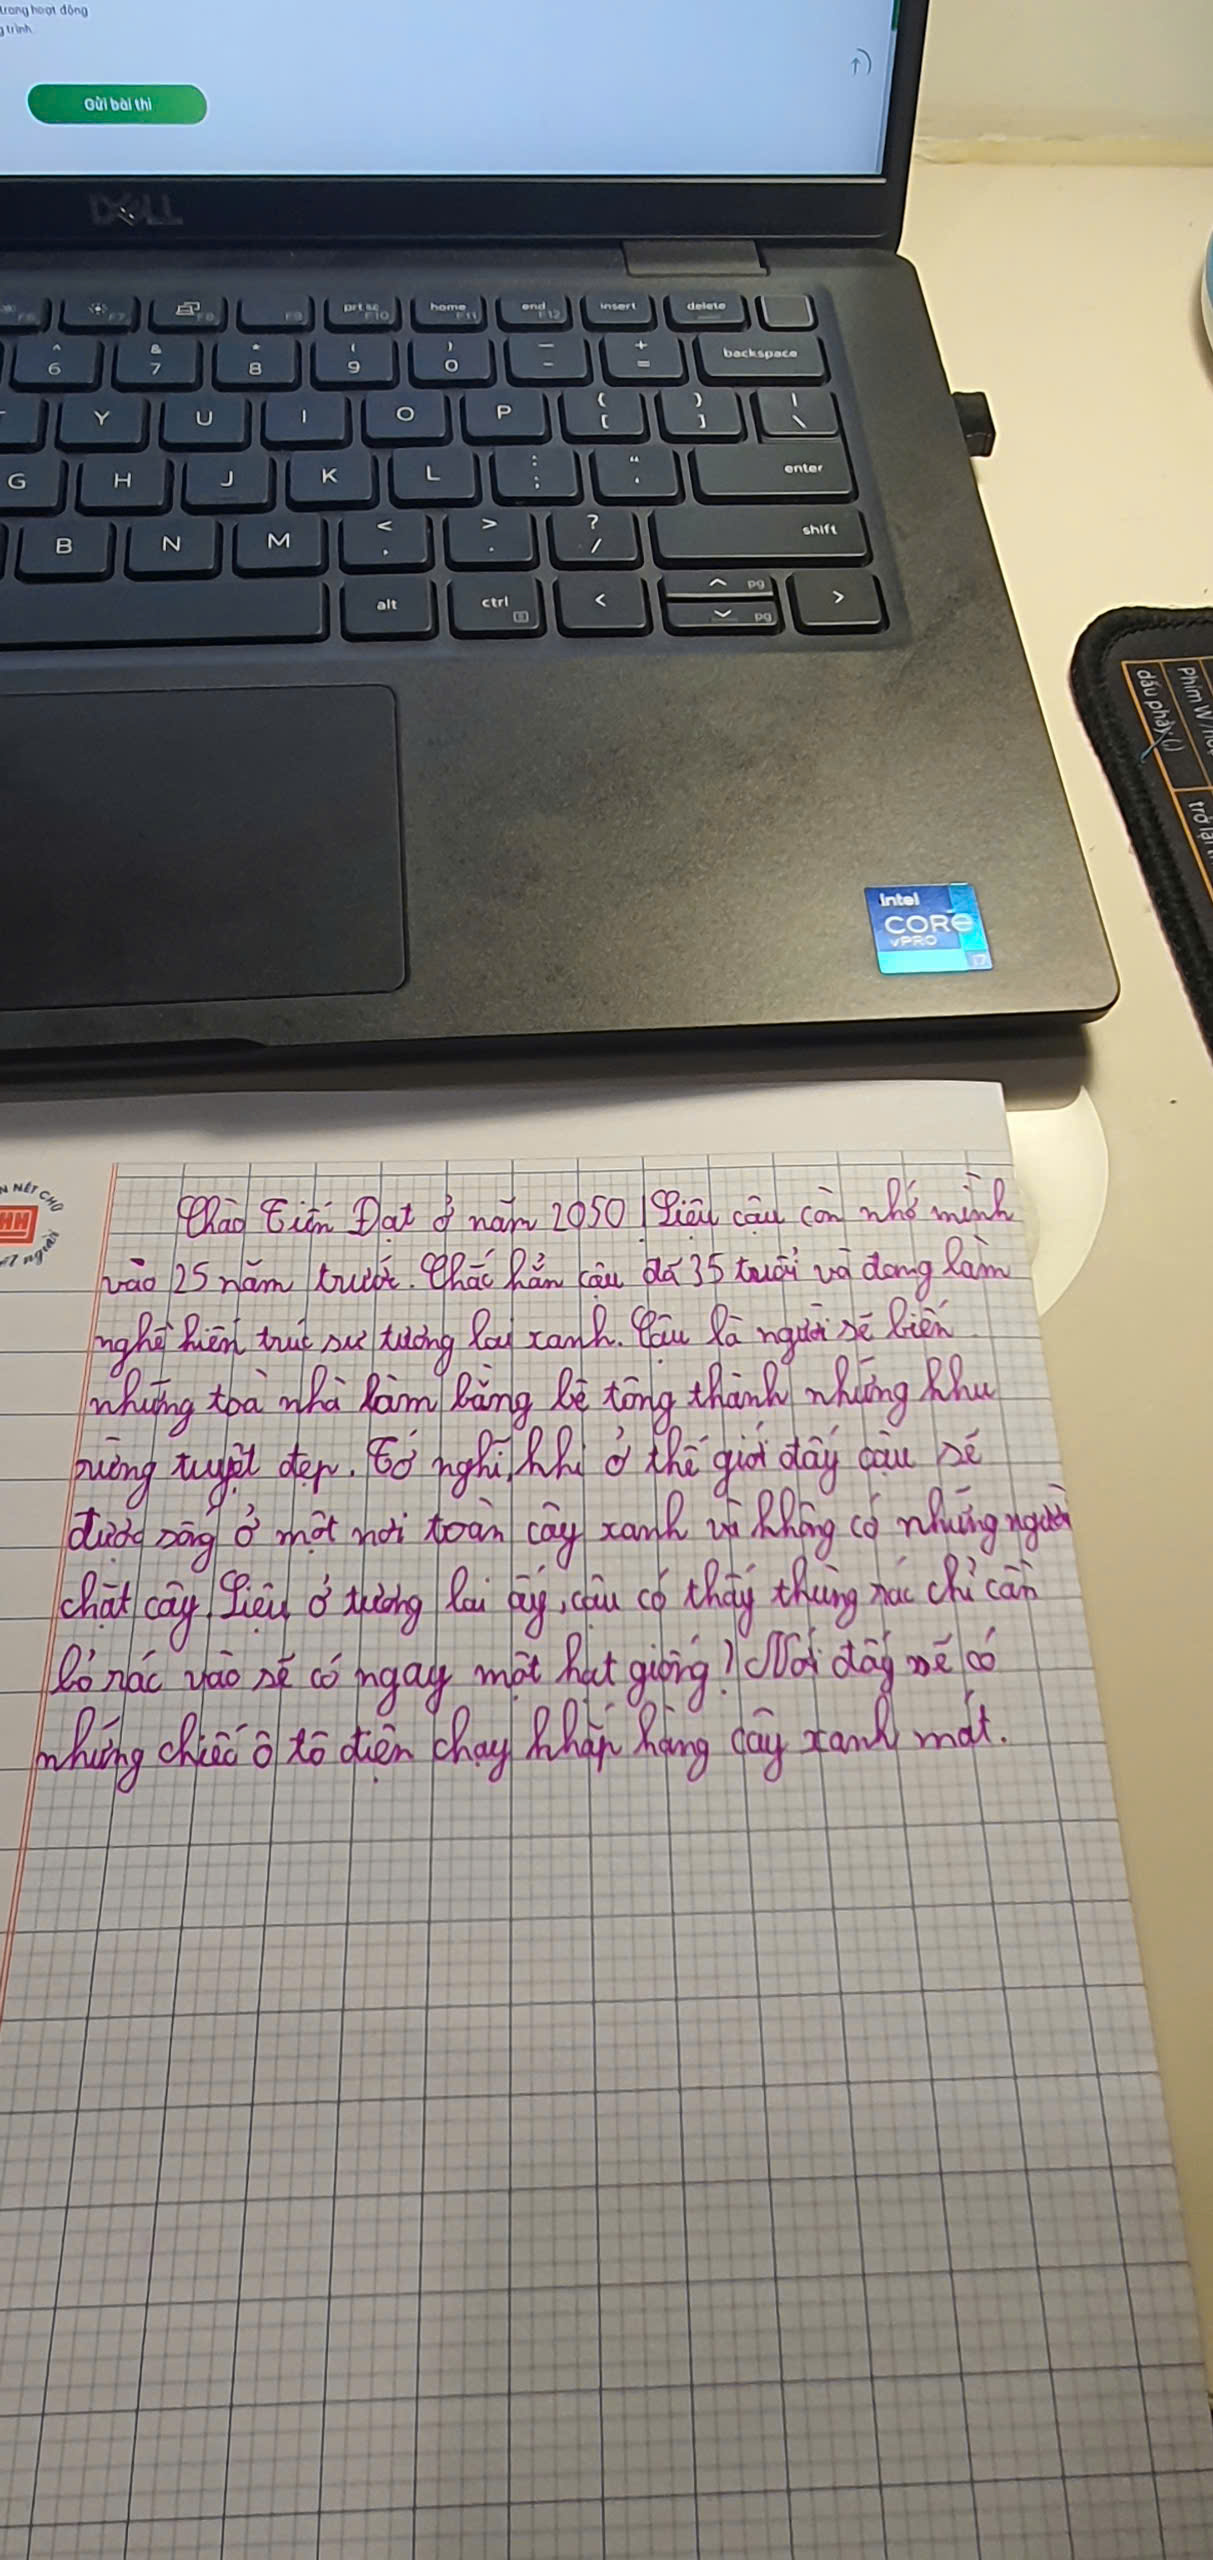 trong hoạt động
g trình
Gửi bài thi
DELL
F6 F7 F8 F9 prt sc F10 home F11 end F12 insert delete
^ 6 & 7 * 8 ( 9 ) 0 — - + = backspace
Y U I O P { [ } ] | \
G H J K L : ; " ' enter
B N M < , > . ? / shift
alt ctrl < ^ pg pg >
intel
CORe
vPRO
i7
Phím W
dấu phẩy (,)
trở lại
N NÉT CHỮ
HH
người
Chào Tiến Đạt ở năm 2050! Liệu cậu còn nhớ mình
vào 25 năm trước. Chắc hẳn cậu đã 35 tuổi và đang làm
nghề kiến trúc sư tương lai xanh. Cậu là người sẽ biến
những toà nhà làm bằng bê tông thành những khu
rừng tuyệt đẹp. Tớ nghĩ, khi ở thế giới đấy cậu sẽ
được sống ở một nơi toàn cây xanh và không có những người
chặt cây. Liệu ở tương lai ấy, cậu có thấy thùng rác chỉ cần
bỏ rác vào sẽ có ngay một hạt giống? Nơi đấy sẽ có
những chiếc ô tô điện chạy khắp hàng cây xanh mát.